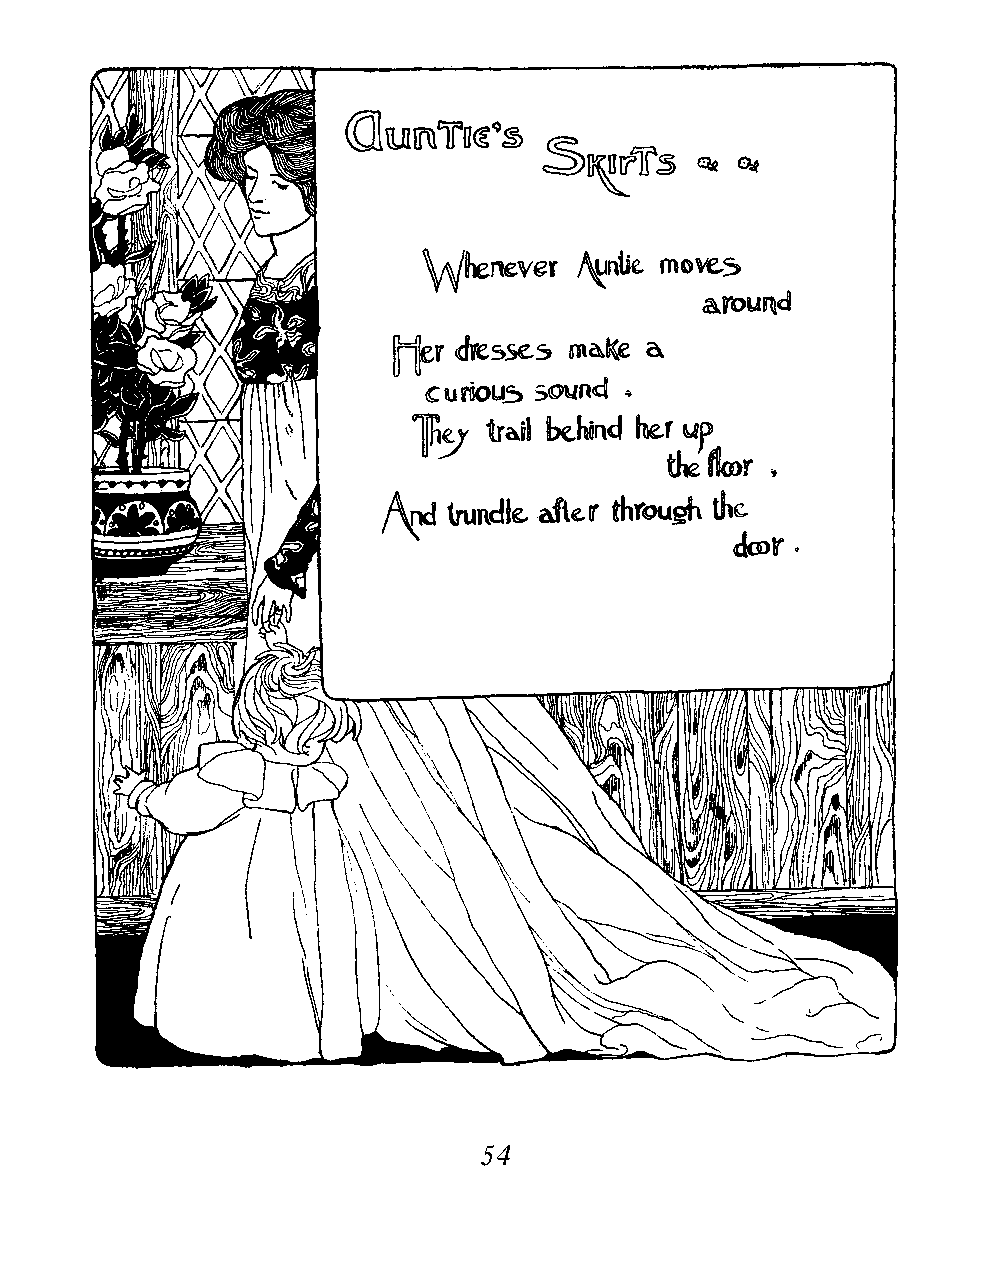 Auntie's
Skirts
Whenever Auntie moves
around
Her dresses make a
curious sound .
They trail behind her up
the floor ,
And trundle after through the
door .
54